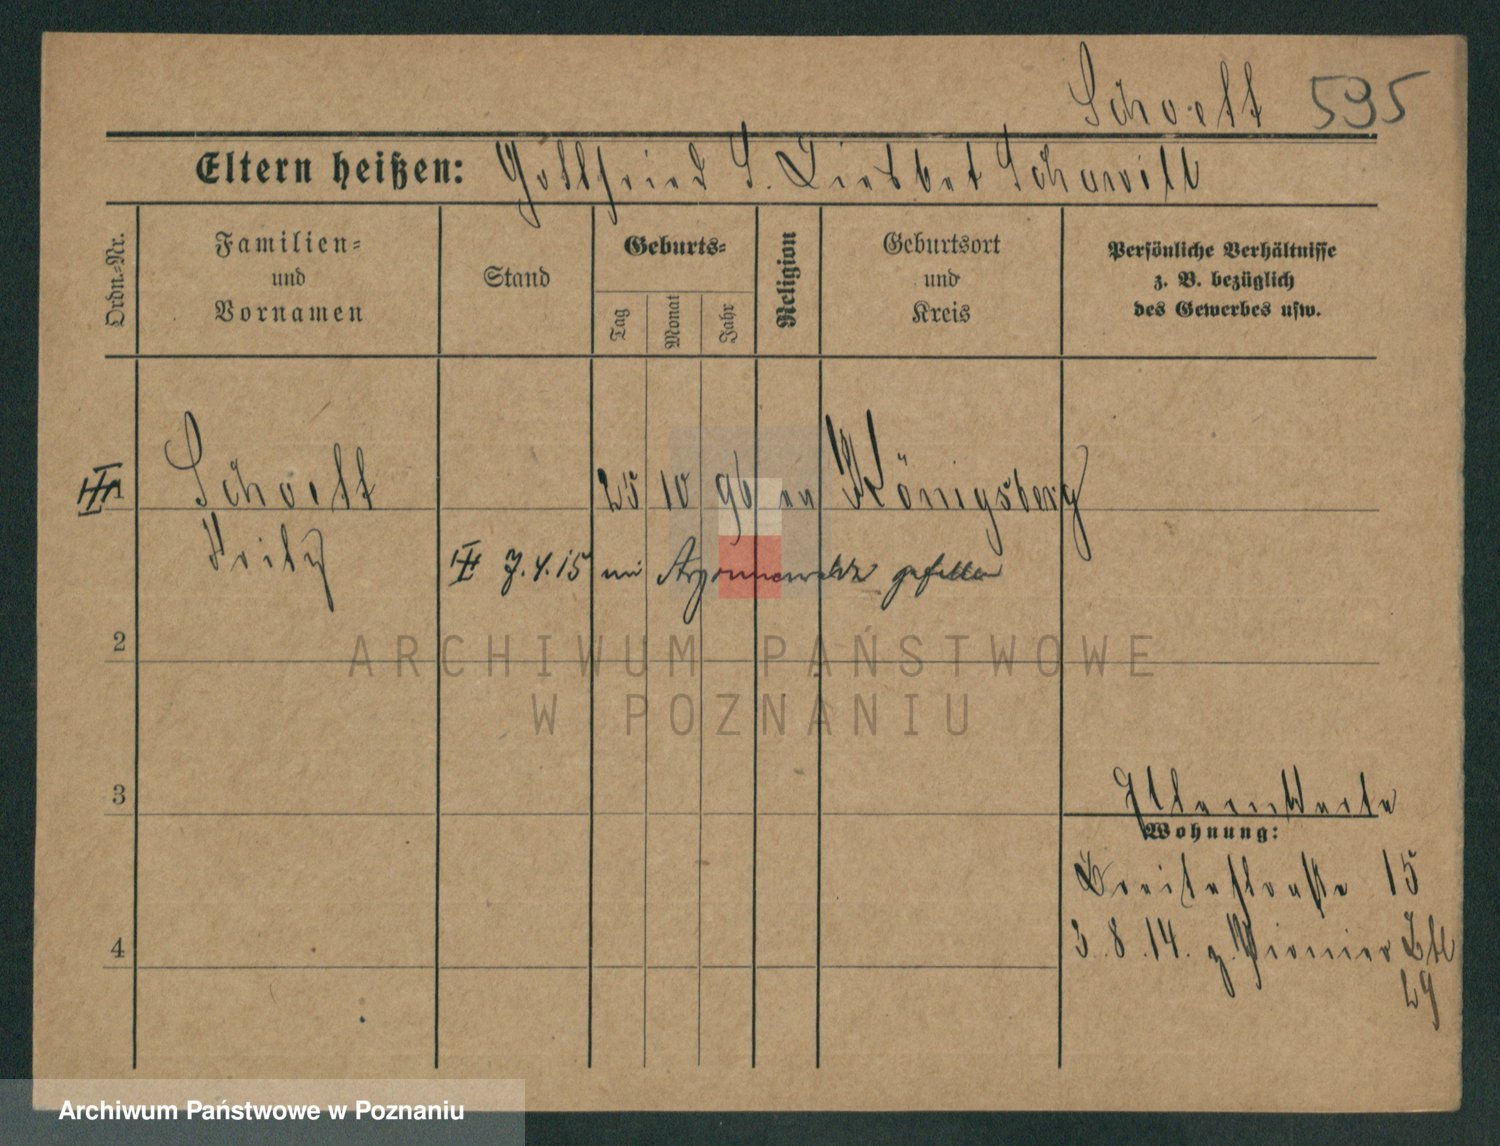 Schoett 595
Eltern heißen: Gottfried u. Liesbet
Ordn.-Nr.
Familien-
und
Vornamen
Stand
Geburts-
Tag
Monat
Jahr
Religion
Geburtsort
und
Kreis
Persönliche Verhältnisse
z. B. bezüglich
des Gewerbes usw.
1 Schoett 25 10 96 ev Königsberg
Fritz
7.4.15 im Argonnerwalde gefallen
2
ARCHIWUM PAŃSTWOWE
W POZNANIU
3
Wohnung:
Breitestraße 15
4 3.8.14. z. Pionier Btl
29
Archiwum Państwowe w Poznaniu